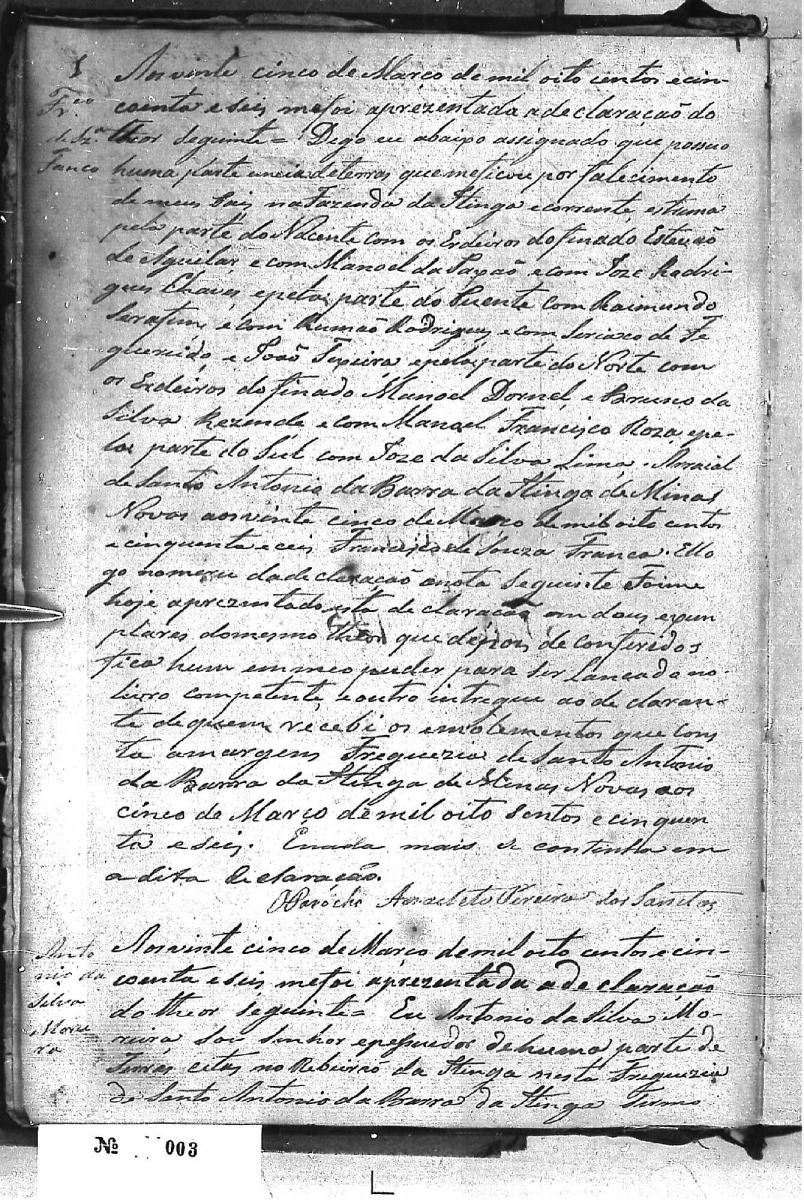 1
Fr.co
de Sz.a
Franco
Aos vinte cinco de Março de mil oito centos e cin-
coenta e seis me foi aprezentada a declaração do
theor seguinte = Digo eu abaixo assignado que possuo
huma parte de terras que me ficou por falecimento
de meus Pais na Fazenda da Itinga e corrente estrema
pela parte do Nacente com os Erdeiros do finado Estevão
de Aguilar e com Manoel da Payxão e com Joze Rodri-
gues Chaves, e pela parte do Puente com Raimundo
Sarafim e com Rumão Rodrigues e com Seriaco de Fe
gueredo, e João Texeira e pela parte do Norte com
os Erdeiros do finado Manoel Dornel, e Bruno da
Silva Rezende e com Manoel Francisco Roza, epe-
la parte do Sul com Joze da Silva Lima. Arraial
de Santo Antonio da Barra da Itinga de Minas
Novas aos vinte cinco de Março de mil oito centos
e cinquenta e ceis Francisco de Souza Franco. E lo
go no da declaração a nota seguinte Foi me
hoje aprezentado esta declaração em dous exem
plares do mesmo theor que depois de conferidos
fica hum em meo puder para ser Lançado no
livro competente, e outro intregue ao declaran-
te de quem recebi os emolementos que cons
ta a margem Freguezia de Santo Antonio
da Barra da Itinga de Minas Novas aos
cinco de Março de mil oito sentos e cinquen
ta e seis. E nada mais se continha em
a dita declaração.
O Parócho Anacleto Pereira dos Sanctos
Anto
nio da
Silva
Morei
ra
Aos vinte cinco de Março de mil oito centos e cin-
coenta e seis me foi aprezentada a declaração
do theor seguinte = Eu Antonio da Silva Mo-
reira sou Senhor e pessuidor de huma parte de
Terras citas no Ribeirão da Itinga nesta Freguezia
de Santo Antonio da Barra da Itinga Termo
No 003